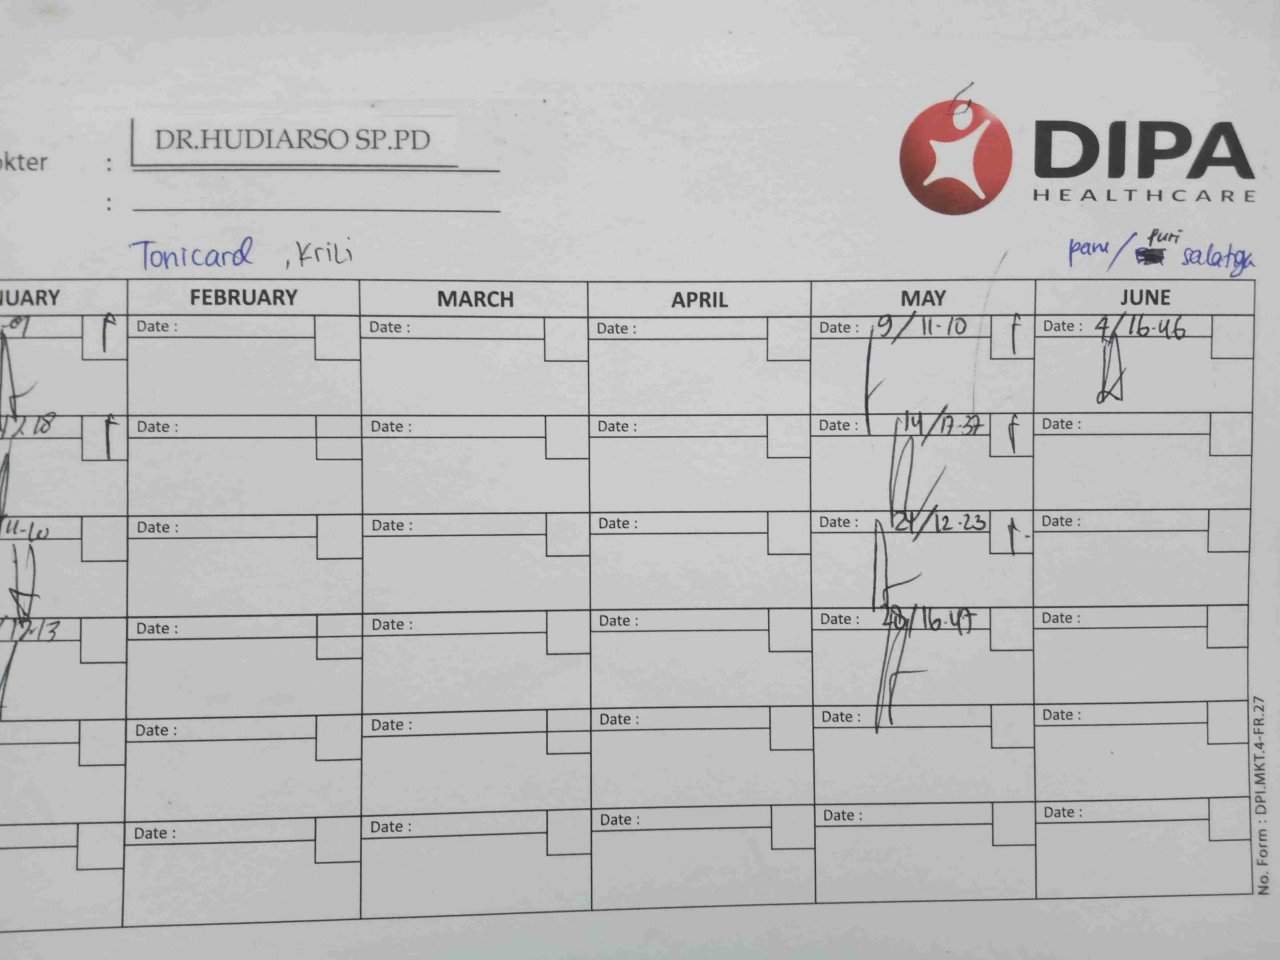 DIPA
HEALTHCARE
okter : DR.HUDIARSO SP.PD
:
Tonicard , Krili
/ puri salatga
NUARY FEBRUARY MARCH APRIL MAY JUNE
Date : Date : Date : Date : 9/11-10 Date : 4/16-46
Date : Date : Date : Date : 14/17-37 Date :
11-10 Date : Date : Date : Date : 21/12-23 Date :
/12-13 Date : Date : Date : Date : 28/16-47 Date :
Date : Date : Date : Date : Date :
Date : Date : Date : Date : Date :
No. Form : DPI.MKT.4-FR.27